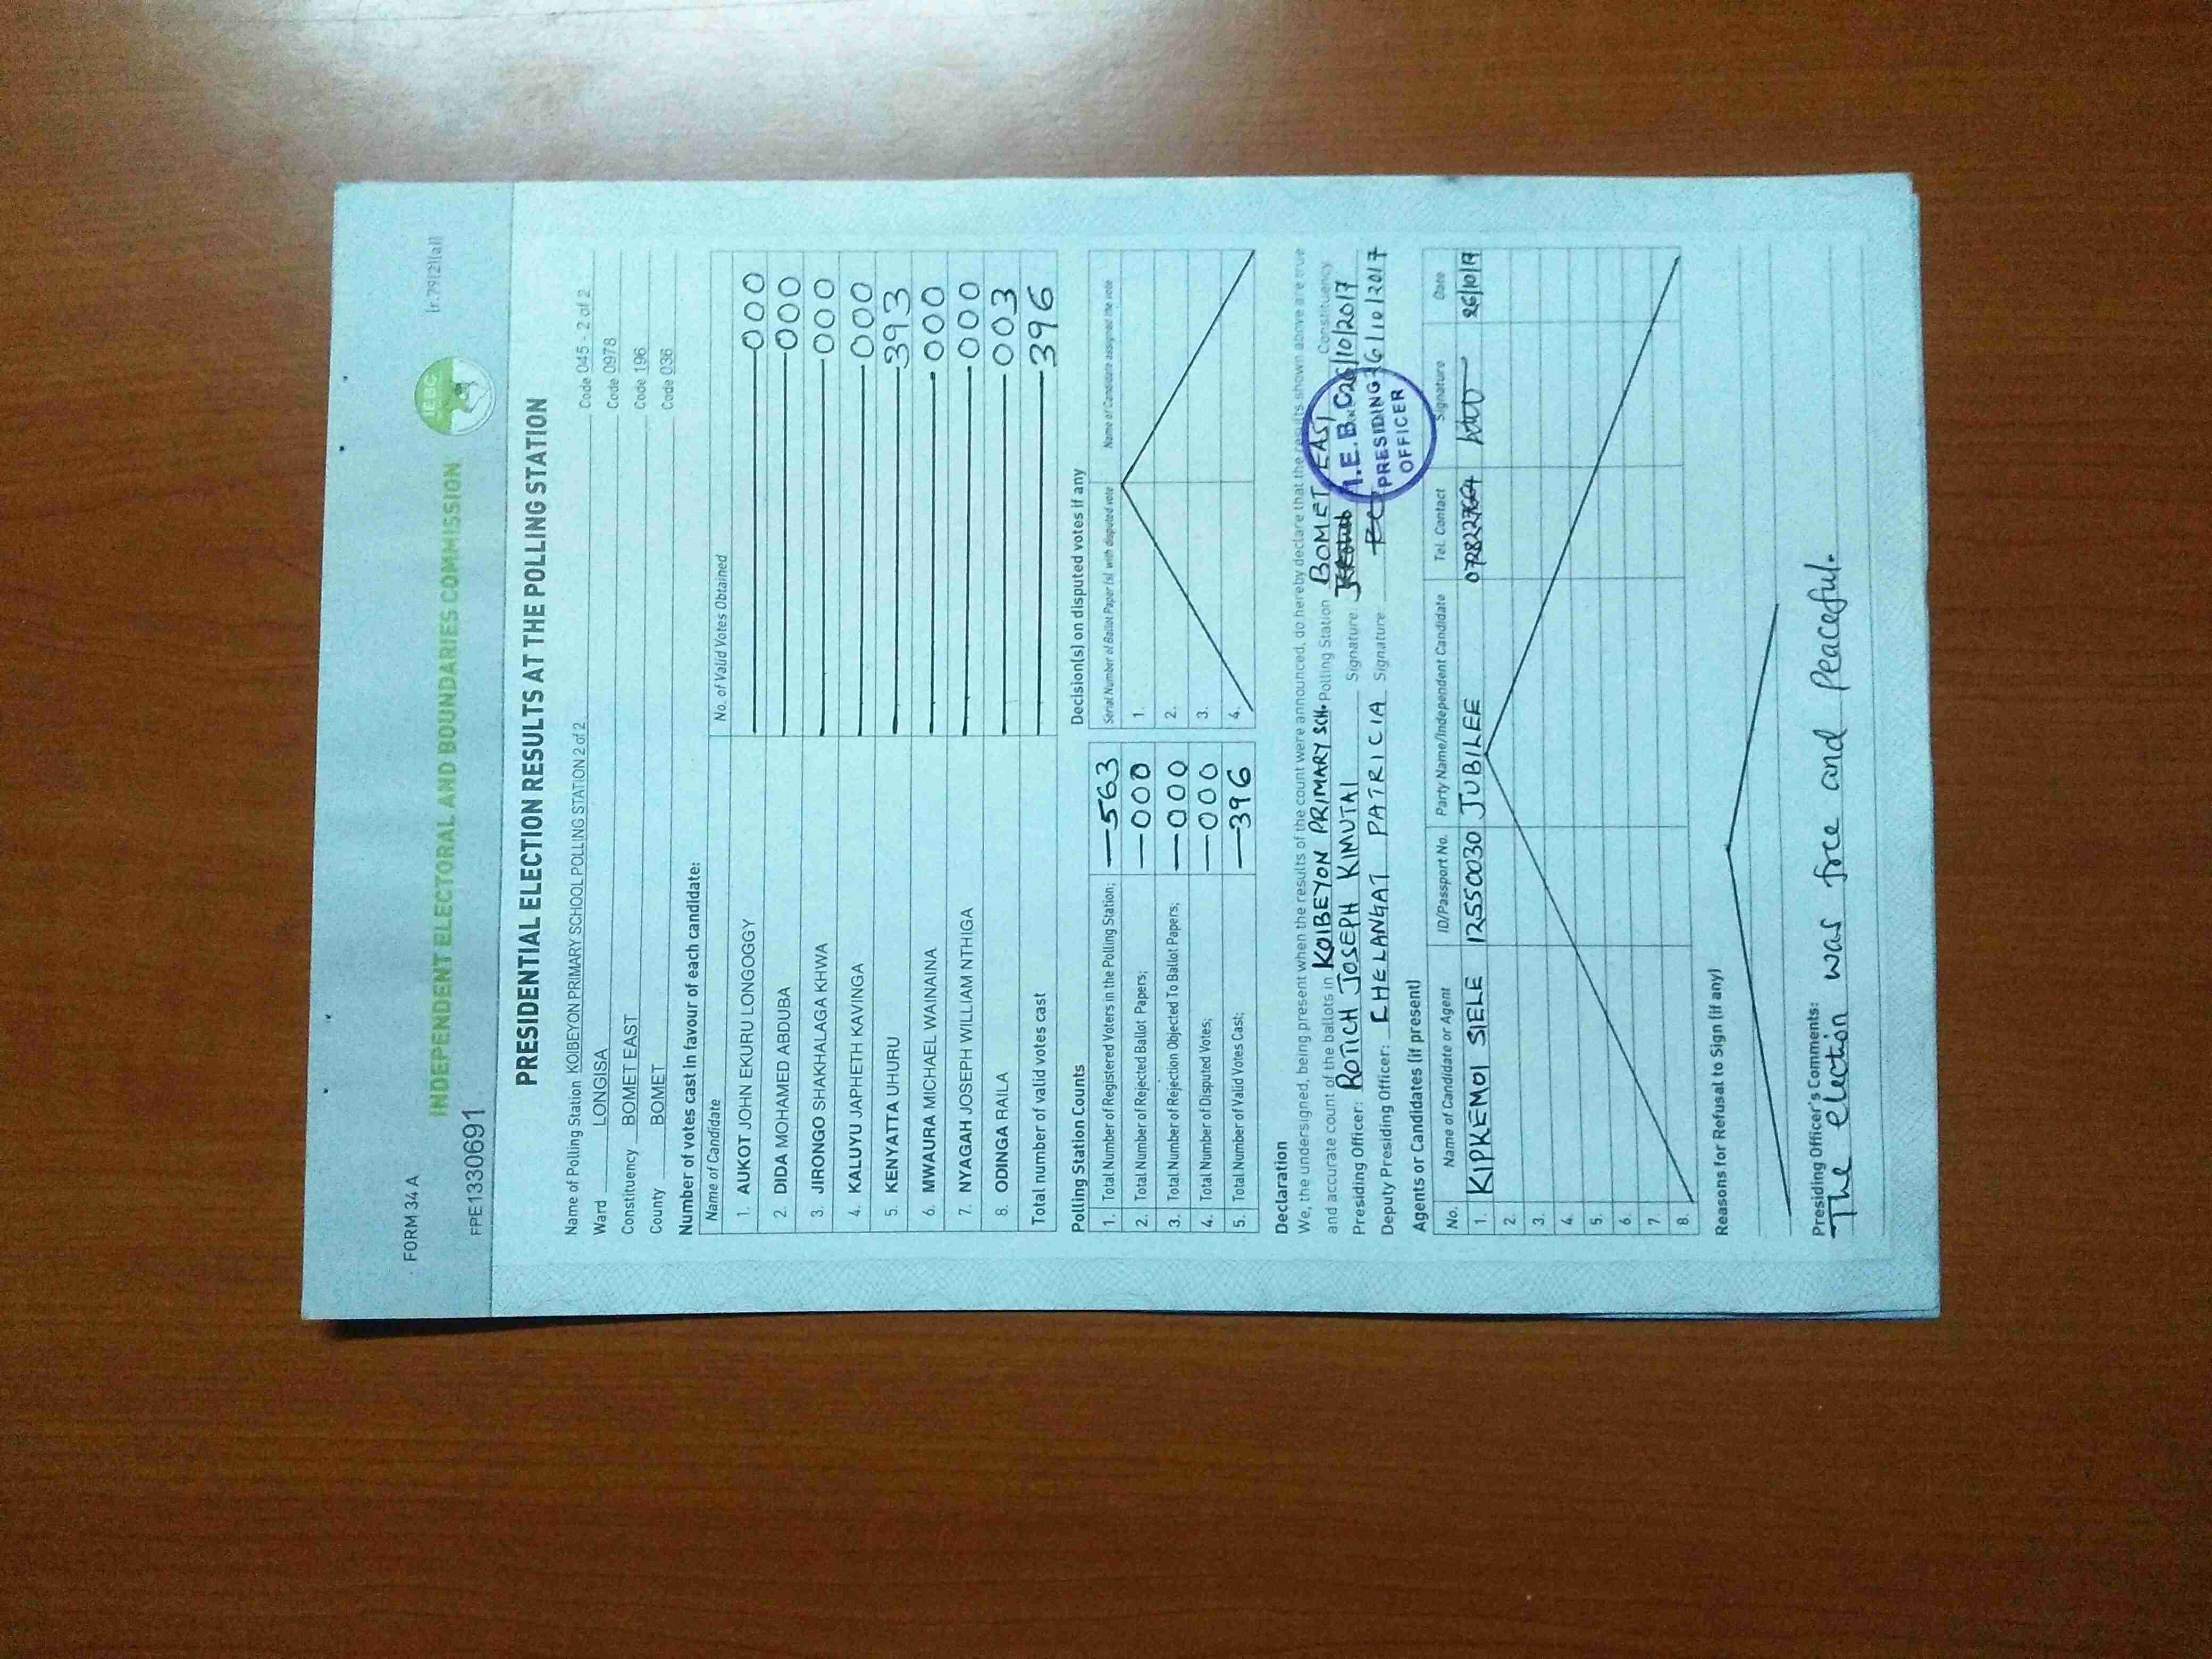 FORM 34 A
(r.79(2)(a))
IEBC
INDEPENDENT ELECTORAL AND BOUNDARIES COMMISSION
FPE1330691
PRESIDENTIAL ELECTION RESULTS AT THE POLLING STATION
Name of Polling Station KOIBEYON PRIMARY SCHOOL POLLING STATION 2 of 2 Code 045 - 2 of 2
Ward LONGISA Code 0978
Constituency BOMET EAST Code 196
County BOMET Code 036
Number of votes cast in favour of each candidate:
Name of Candidate No. of Valid Votes Obtained
1. AUKOT JOHN EKURU LONGOGGY 000
2. DIDA MOHAMED ABDUBA 000
3. JIRONGO SHAKHALAGA KHWA 000
4. KALUYU JAPHETH KAVINGA 000
5. KENYATTA UHURU 393
6. MWAURA MICHAEL WAINAINA 000
7. NYAGAH JOSEPH WILLIAM NTHIGA 000
8. ODINGA RAILA 003
Total number of valid votes cast 396
Polling Station Counts
1. Total Number of Registered Voters in the Polling Station; 563
2. Total Number of Rejected Ballot Papers; 000
3. Total Number of Rejection Objected To Ballot Papers; 000
4. Total Number of Disputed Votes; 000
5. Total Number of Valid Votes Cast; 396
Decision(s) on disputed votes if any
Serial Number of Ballot Paper (s) with disputed vote Name of Candidate assigned the vote
1.
2.
3.
4.
Declaration
We, the undersigned, being present when the results of the count were announced, do hereby declare that the results shown above are true
and accurate count of the ballots in KOIBEYON PRIMARY SCH. Polling Station BOMET EAST Constituency
Presiding Officer: ROTICH JOSEPH KIMUTAI Signature 26/10/2017
Deputy Presiding Officer: CHELANGAT PATRICIA Signature 26/10/2017
I.E.B.C
PRESIDING
OFFICER
Agents or Candidates (if present)
No. Name of Candidate or Agent ID/Passport No. Party Name/Independent Candidate Tel. Contact Signature Date
1. KIPKEMOI SIELE 12550030 JUBILEE 26/10/17
2.
3.
4.
5.
6.
7.
8.
Reasons for Refusal to Sign (if any)
Presiding Officer's Comments:
The election was free and peaceful.